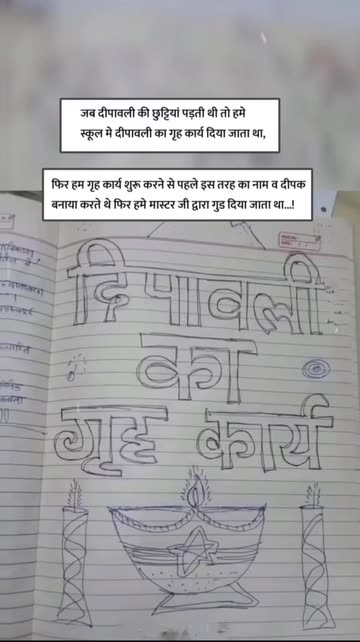 जब दीपावली की छुट्टियां पड़ती थी तो हमे
स्कूल मे दीपावली का गृह कार्य दिया जाता था,
फिर हम गृह कार्य शुरू करने से पहले इस तरह का नाम व दीपक
बनाया करते थे फिर हमे मास्टर जी द्वारा गुड दिया जाता था...!
दिपावली
का
गृह कार्य